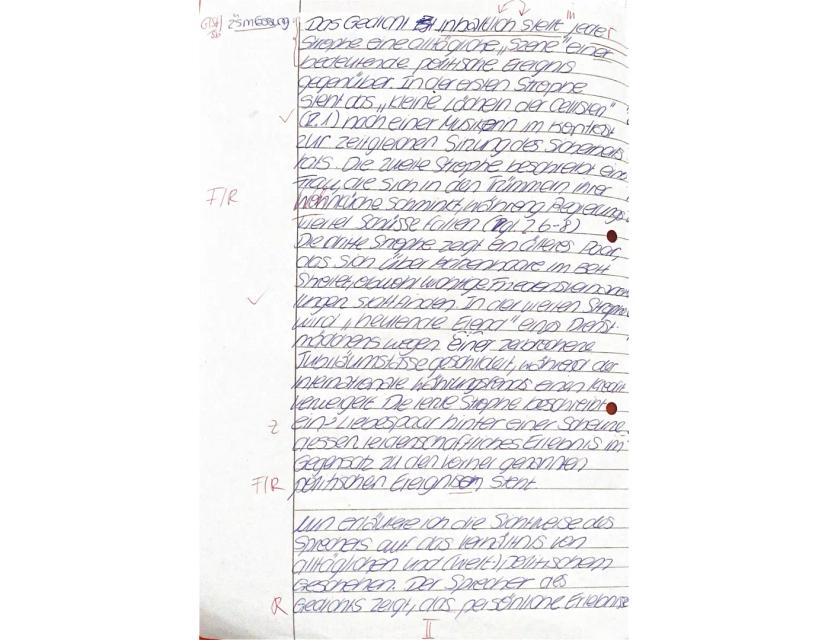 Das Gedicht inhaltlich stellt jeder
Strophe eine alltägliche „Szene" einer
bedeutende politische Ereignis
gegenüber. In der ersten Strophe
steht das „kleine Lächeln der Cellistin"
(Z.1) nach einer Musik im Kontrast
zur zeitgleichen Sitzung des Sicherheits
rats. Die zweite Strophe beschreibt eine
Frau, die sich in den Trümmern ihrer
Wohnküche schminkt, während Regierungs-
viertel Schüsse fallen (Vgl. Z.6-8)
Die dritte Strophe zeigt ein älteres Paar,
das sich über Katzenhaare im Bett
streitet, obwohl wichtige Friedensverhand
lungen stattfinden. In der vierten Strophe
wird „heulende Elend" eines Dienst-
mädchens wegen einer zerbrochene
Jubiläumstasse geschildert, während der
internationale Währungsfonds einen Kredit
verweigert. Die letzte Strophe beschreibt
Z
ein Liebespaar hinter einer Scheune,
dessen leidenschaftliches Erlebnis im
Gegensatz zu den vorher genannten
F/R
politischen Ereignissen steht.
Nun erläutere ich die Sichtweise des
Sprechers auf das Verhältnis von
alltäglichen und (welt-)politischem
Geschehen. Der Sprecher des
R
Gedichts zeigt, das persönliche Erlebnisse
II
F/R